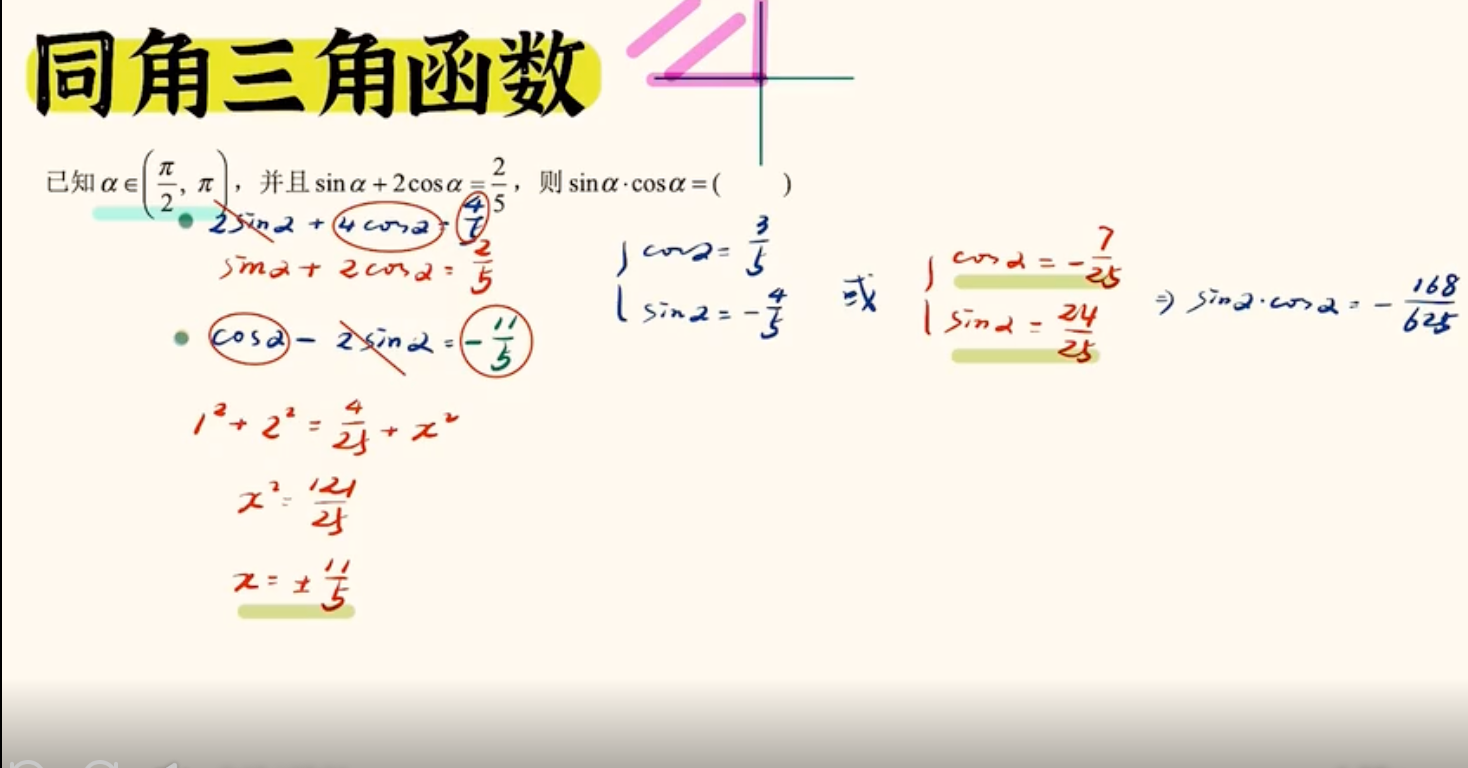 同角三角函数
已知 α∈(π/2, π), 并且 sinα+2cosα=2/5, 则 sinα·cosα=( )
2sinα + 4cosα = 4/5
sinα + 2cosα = 2/5
cosα - 2sinα = -11/5
1² + 2² = 4/25 + x²
x² = 121/25
x = ± 11/5
{ cosα = 3/5
sinα = -4/5
或
{ cosα = -7/25
sinα = 24/25
⇒ sinα·cosα = - 168/625